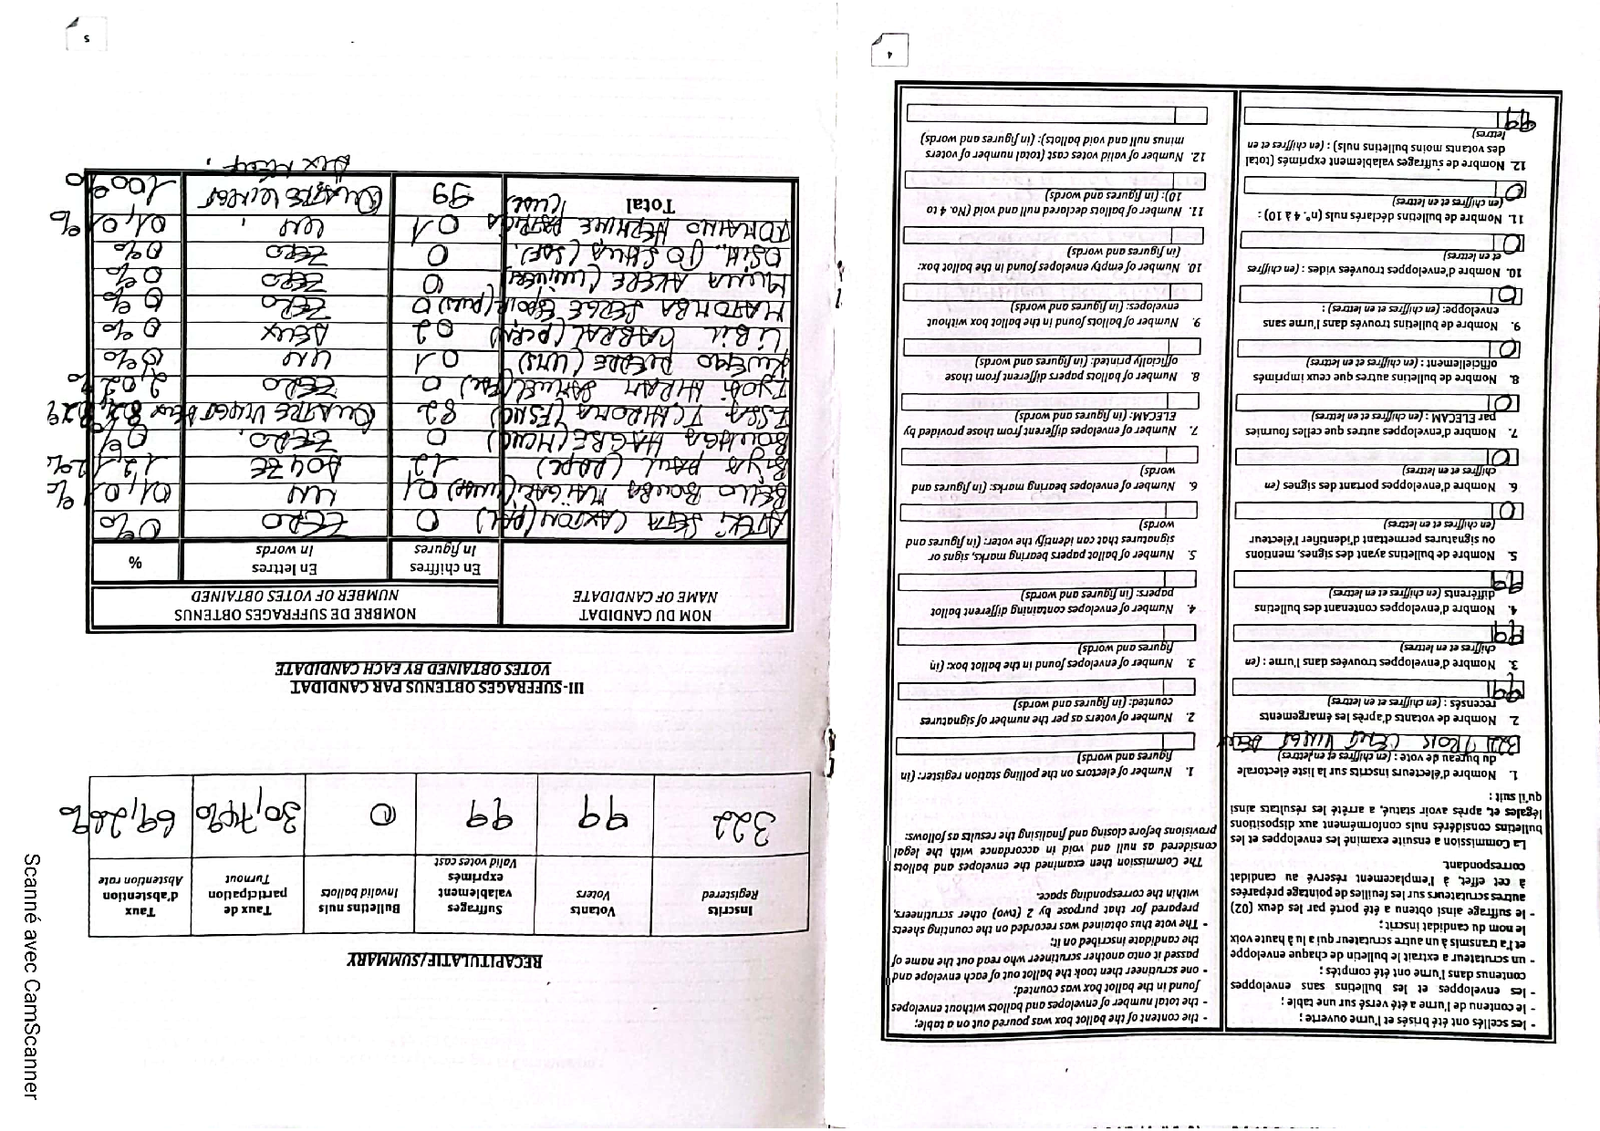 4
- les scellés ont été brisés et l'urne ouverte ;
- le contenu de l'urne a été versé sur une table ;
- les enveloppes et les bulletins sans enveloppes
contenus dans l'urne ont été comptés ;
- un scrutateur a extrait le bulletin de chaque enveloppe
et l'a transmis à un autre scrutateur qui a lu à haute voix
le nom du candidat inscrit ;
- le suffrage ainsi obtenu a été porté par les deux (02)
autres scrutateurs sur les feuilles de pointage préparées
à cet effet, à l'emplacement réservé au candidat
correspondant.
La Commission a ensuite examiné les enveloppes et les
bulletins considérés nuls conformément aux dispositions
légales et, après avoir statué, a arrêté les résultats ainsi
qu'il suit :
1. Nombre d'électeurs inscrits sur la liste électorale
du bureau de vote : (en chiffres et en lettres)
322 TROIS CENT VINGT DEUX
2. Nombre de votants d'après les émargements
recensés : (en chiffres et en lettres)
99
3. Nombre d'enveloppes trouvées dans l'urne : (en
chiffres et en lettres)
99
4. Nombre d'enveloppes contenant des bulletins
différents (en chiffres et en lettres)
99
5. Nombre de bulletins ayant des signes, mentions
ou signatures permettant d'identifier l'électeur
(en chiffres et en lettres)
0
6. Nombre d'enveloppes portant des signes (en
chiffres et en lettres)
0
7. Nombre d'enveloppes autres que celles fournies
par ELECAM : (en chiffres et en lettres)
0
8. Nombre de bulletins autres que ceux imprimés
officiellement : (en chiffres et en lettres)
0
9. Nombre de bulletins trouvés dans l'urne sans
enveloppe: (en chiffres et en lettres) :
0
10. Nombre d'enveloppes trouvées vides : (en chiffres
et en lettres)
0
11. Nombre de bulletins déclarés nuls (n°. 4 à 10) :
(en chiffres et en lettres)
0
12. Nombre de suffrages valablement exprimés (total
des votants moins bulletins nuls) : (en chiffres et en
lettres)
99
- the content of the ballot box was poured out on a table;
- the total number of envelopes and ballots without envelopes
found in the ballot box was counted;
- one scrutineer then took the ballot out of each envelope and
passed it onto another scrutineer who read out the name of
the candidate inscribed on it;
- The vote thus obtained was recorded on the counting sheets
prepared for that purpose by 2 (two) other scrutineers,
within the corresponding space.
The Commission then examined the envelopes and ballots
considered as null and void in accordance with the legal
provisions before closing and finalising the results as follows:
1. Number of electors on the polling station register: (in
figures and words)
2. Number of voters as per the number of signatures
counted: (in figures and words)
3. Number of envelopes found in the ballot box: (in
figures and words)
4. Number of envelopes containing different ballot
papers: (in figures and words)
5. Number of ballot papers bearing marks, signs or
signatures that can identify the voter: (in figures and
words)
6. Number of envelopes bearing marks: (in figures and
words)
7. Number of envelopes different from those provided by
ELECAM: (in figures and words)
8. Number of ballots papers different from those
officially printed: (in figures and words)
9. Number of ballots found in the ballot box without
envelopes: (in figures and words)
10. Number of empty envelopes found in the ballot box:
(in figures and words)
11. Number of ballots declared null and void (No. 4 to
10): (in figures and words)
12. Number of valid votes cast (total number of voters
minus null and void ballots): (in figures and words)
RECAPITULATIF/SUMMARY
Inscrits Registered
Votants Voters
Suffrages valablement exprimés Valid votes cast
Bulletins nuls Invalid ballots
Taux de participation Turnout
Taux d'abstention Abstention rate
322 99 99 0 30,74% 69,26%
III-SUFFRAGES OBTENUS PAR CANDIDAT
VOTES OBTAINED BY EACH CANDIDATE
NOM DU CANDIDAT
NAME OF CANDIDATE
NOMBRE DE SUFFRAGES OBTENUS
NUMBER OF VOTES OBTAINED
En chiffres In figures
En lettres In words
%
ATEKI SETA CAXTON (PAL) 0 ZERO 0%
BELLO BOUBA MAIGARI (UNDP) 01 UN 01,01 %
BIYA PAUL (RDPC) 12 DOUZE 12,12%
BOUGHA HAGBE (MCNC) 0 ZERO 0%
ISSA TCHIROMA (FSNC) 82 QUATRE VINGT DEUX
IYODI HIRAM SAMUEL (FDC) 0 ZERO 2,02%
KWEMO PIERRE (UMS) 01 UN 0%
LIBII CABRAL (PCRN) 02 DEUX 0%
MATOMBA SERGE ESPOIR (PURS) 0 ZERO 0%
MUNA AKERE (UNIVERS) 0 ZERO 0%
OSIH JOSHUA (SDF) 0 ZERO 0%
TOMAINO HERMINE PATRICIA 01 UN 01,01 %
Total 99 QUATRE VINGT DIX NEUF 100%
5
Scanné avec CamScanner